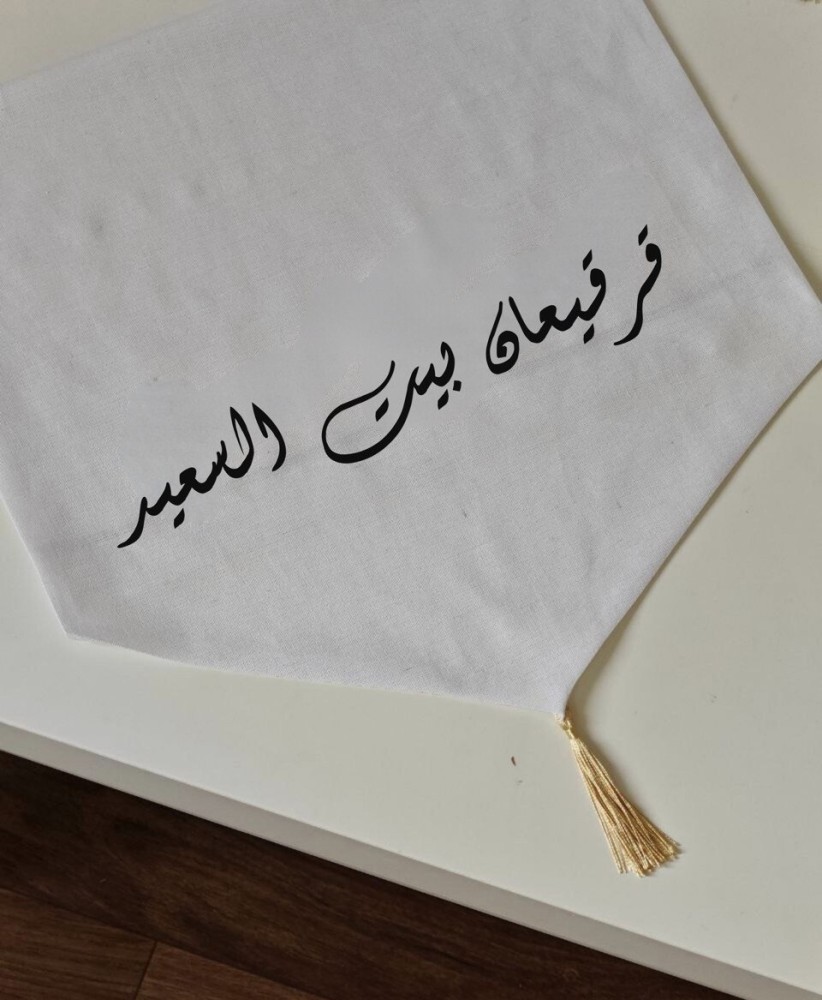 قرقيعان بيت السعيد